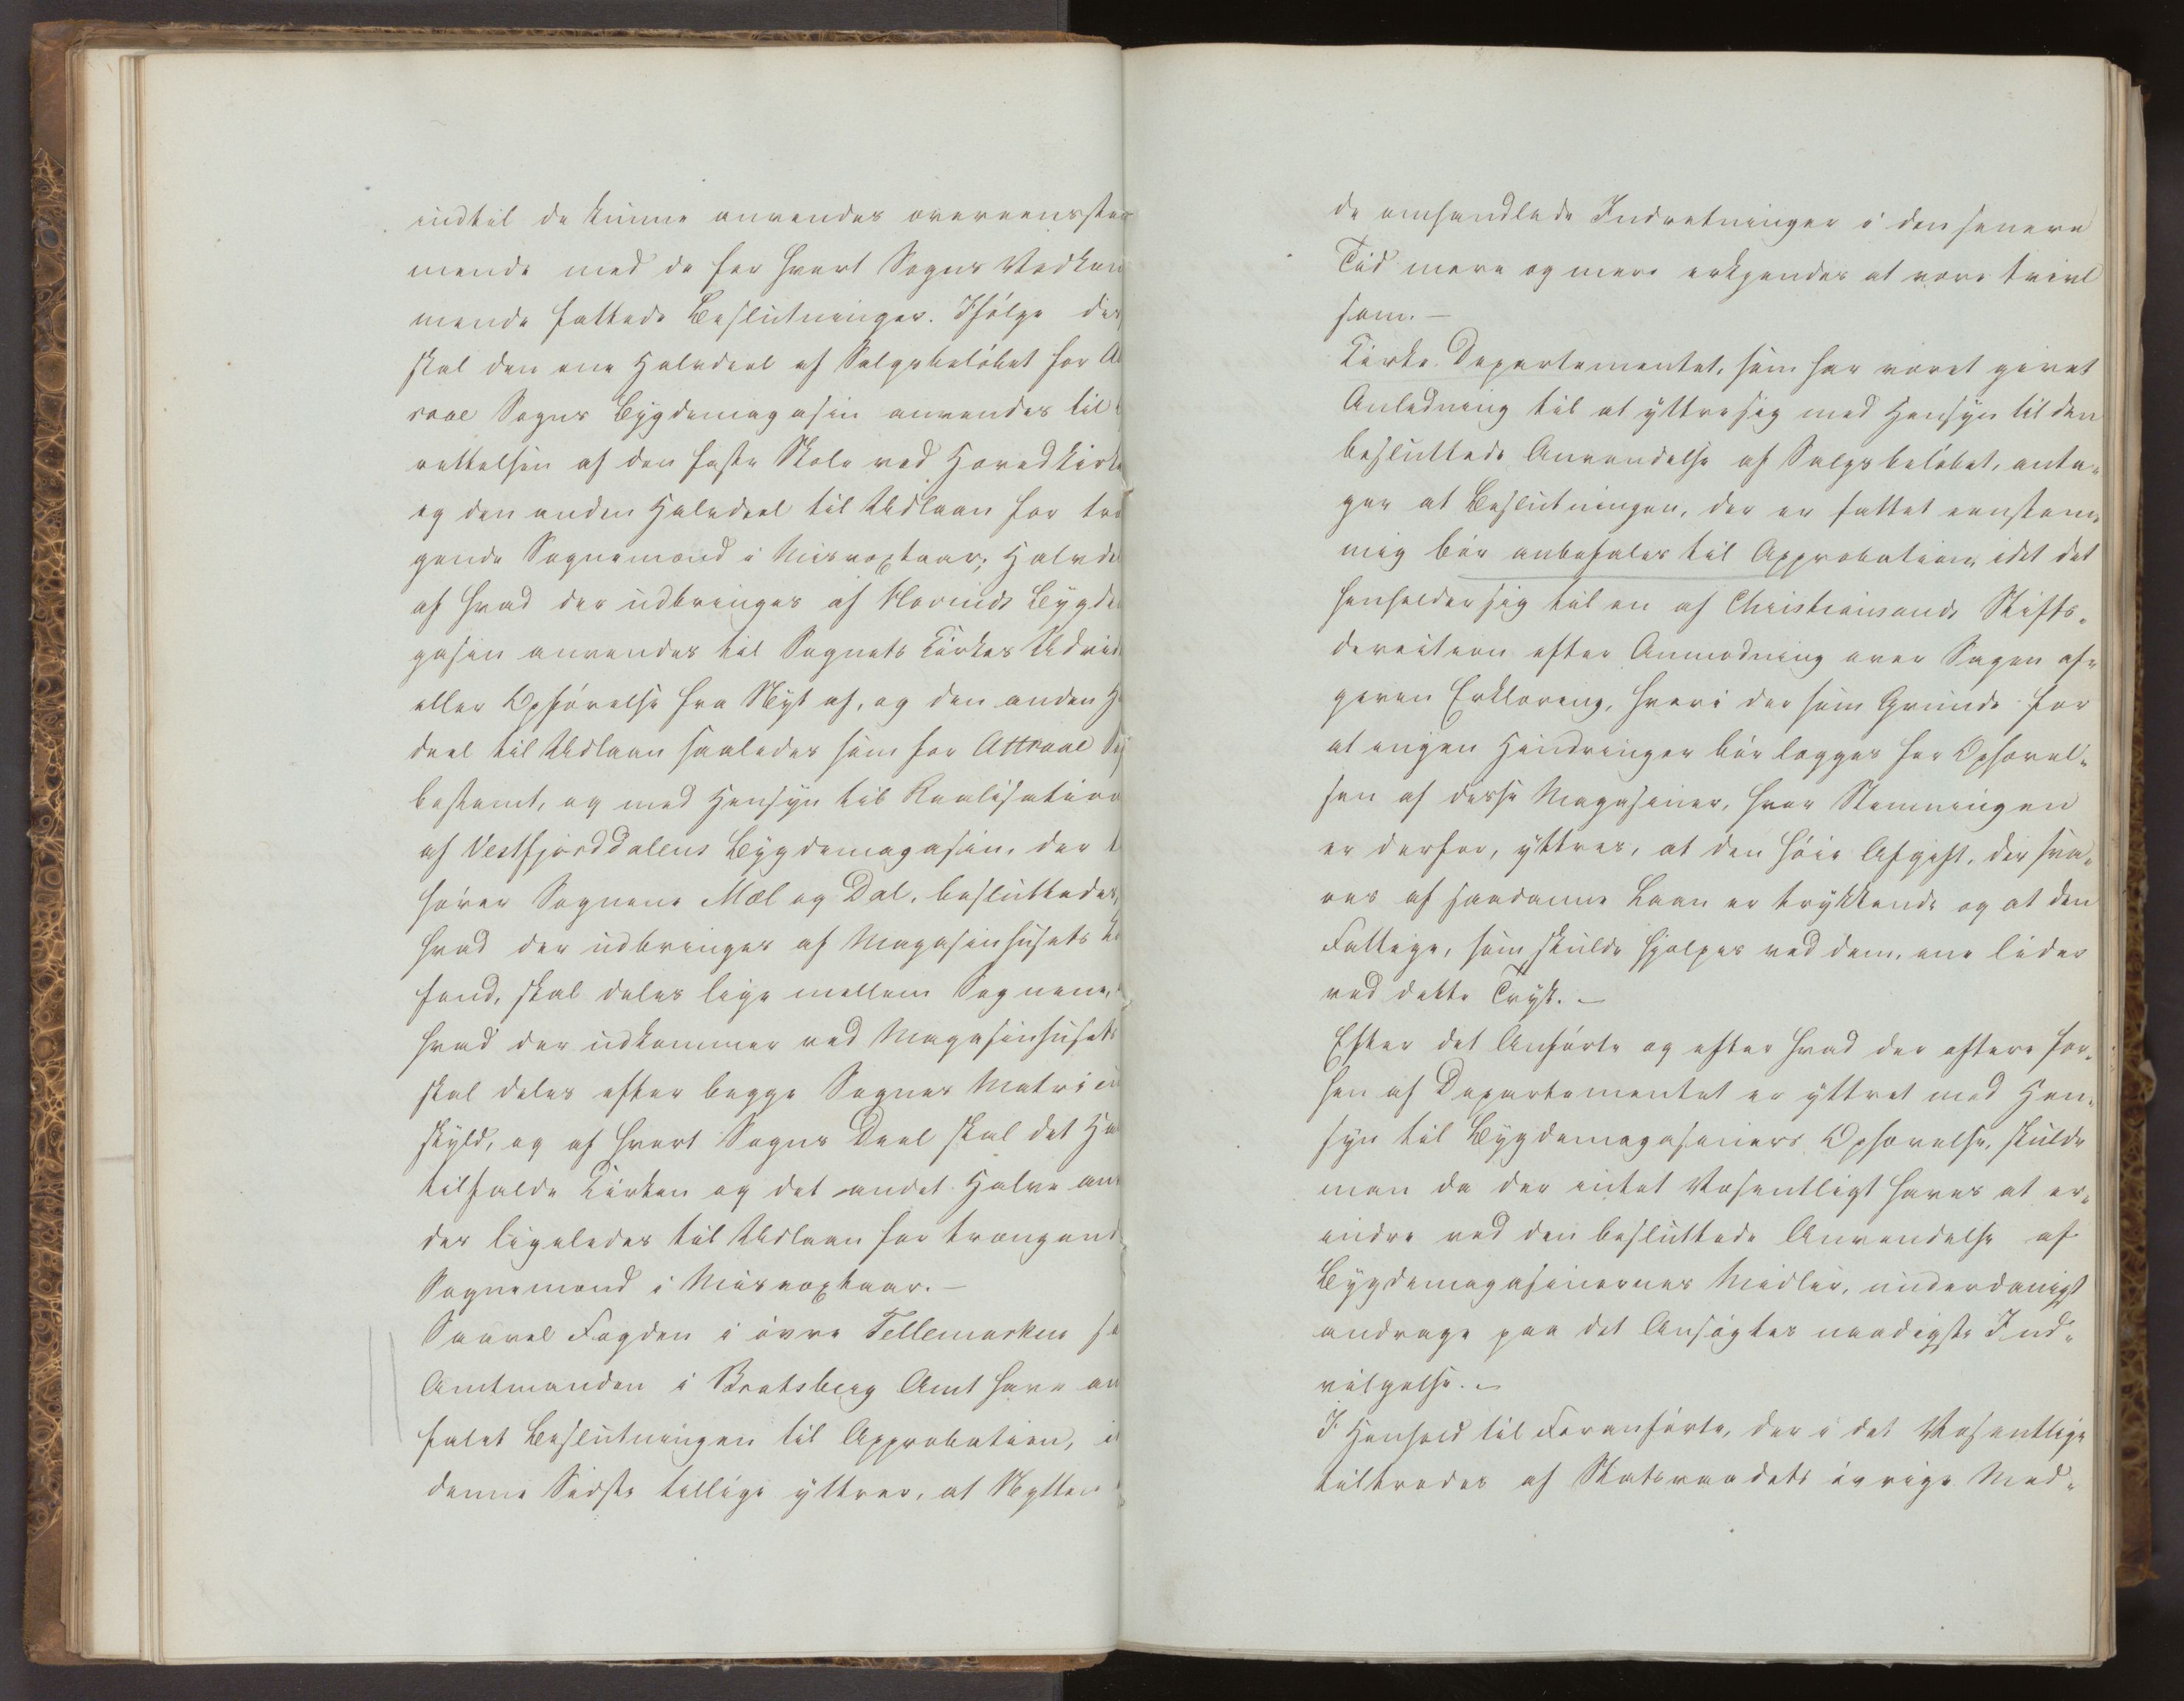 indtil de kunne anvendes overeensstem
mende med de for hvert Sogns Vedkom
mende fattede Beslutninger. Ifølge dis
skal den ene Halvdeel af Salgsbeløbet for At
raae Sogns Bygdemagasin anvendes til
rettelsen af den faste Skole ved Hovedkirk
og den anden Halvdeel til Udlaan for træ
gende Sognemænd i Misvæxtaar; Halvde
af hvad der udbringes af Hovinds Bygde
gasin anvendes til Sognets Kirkes Udvid
eller Opførelse fra Nyt af, og den anden Ha
deel til Udlaan saaledes som for Attraae So
bestemt, og med Hensyn til Realisation
af Vestfjorddalens Bygdemagasin, der t
hører Sognene Mæl og Dal, besluttedes,
hvad der udbringes af Magasinhusets
fond, skal deles lige mellem Sognene,
hvad der udkommer ved Magasinhuset
skal deles efter begge Sognes Matricu
skyld, og af hvert Sogns Deel skal det Ha
tilfalde Kirken og det andet Halve an
des ligeledes til Udlaan for trængend
Sognemænd i Misvæxtaar. —
Saavel Fogden i øvre Tellemarken so
Amtmanden i Bratsberg Amt have an
falet Beslutningen til Approbation, i
denne Sidste tillige yttrer, at Nytten
de omhandlede Indretninger i den senere
Tid mere og mere erkjendes at være tvivl
som. —
Kirke-Departementet, som har været givet
Anledning til at yttre sig med Hensyn til den
besluttede Anvendelse af Salgsbeløbet, anta-
ger at Beslutningen, der er fattet eenstem-
mig bør anbefales til Approbation, idet det
henholder sig til en af Christiansands Stifts-
direction efter Anmodning over Sagen af-
given Erklæring, hvori der som Grunde for
at ingen Hindringer bør lægges for Ophævel-
sen af disse Magasiner, hvor Stemningen
er derfor, yttres, at den høie Afgift, der sva-
res af saadanne Laan er trykkende og at den
Fattige, som skulde hjelpes ved dem, ene lider
ved dette Tryk. —
Efter det Anførte og efter hvad der oftere for-
hen af Departementet er yttret med Hen-
syn til Bygdemagasiners Ophævelse, skulde
man da der intet Væsentligt haves at er-
indre ved den besluttede Anvendelse af
Bygdemagasinernes Midler, underdanigst
andrage paa det Ansøgtes naadigste Ind-
vilgelse. —
I Henhold til Foranførte, der i det Væsentlige
tiltrædes af Statsraadets øvrige Med-